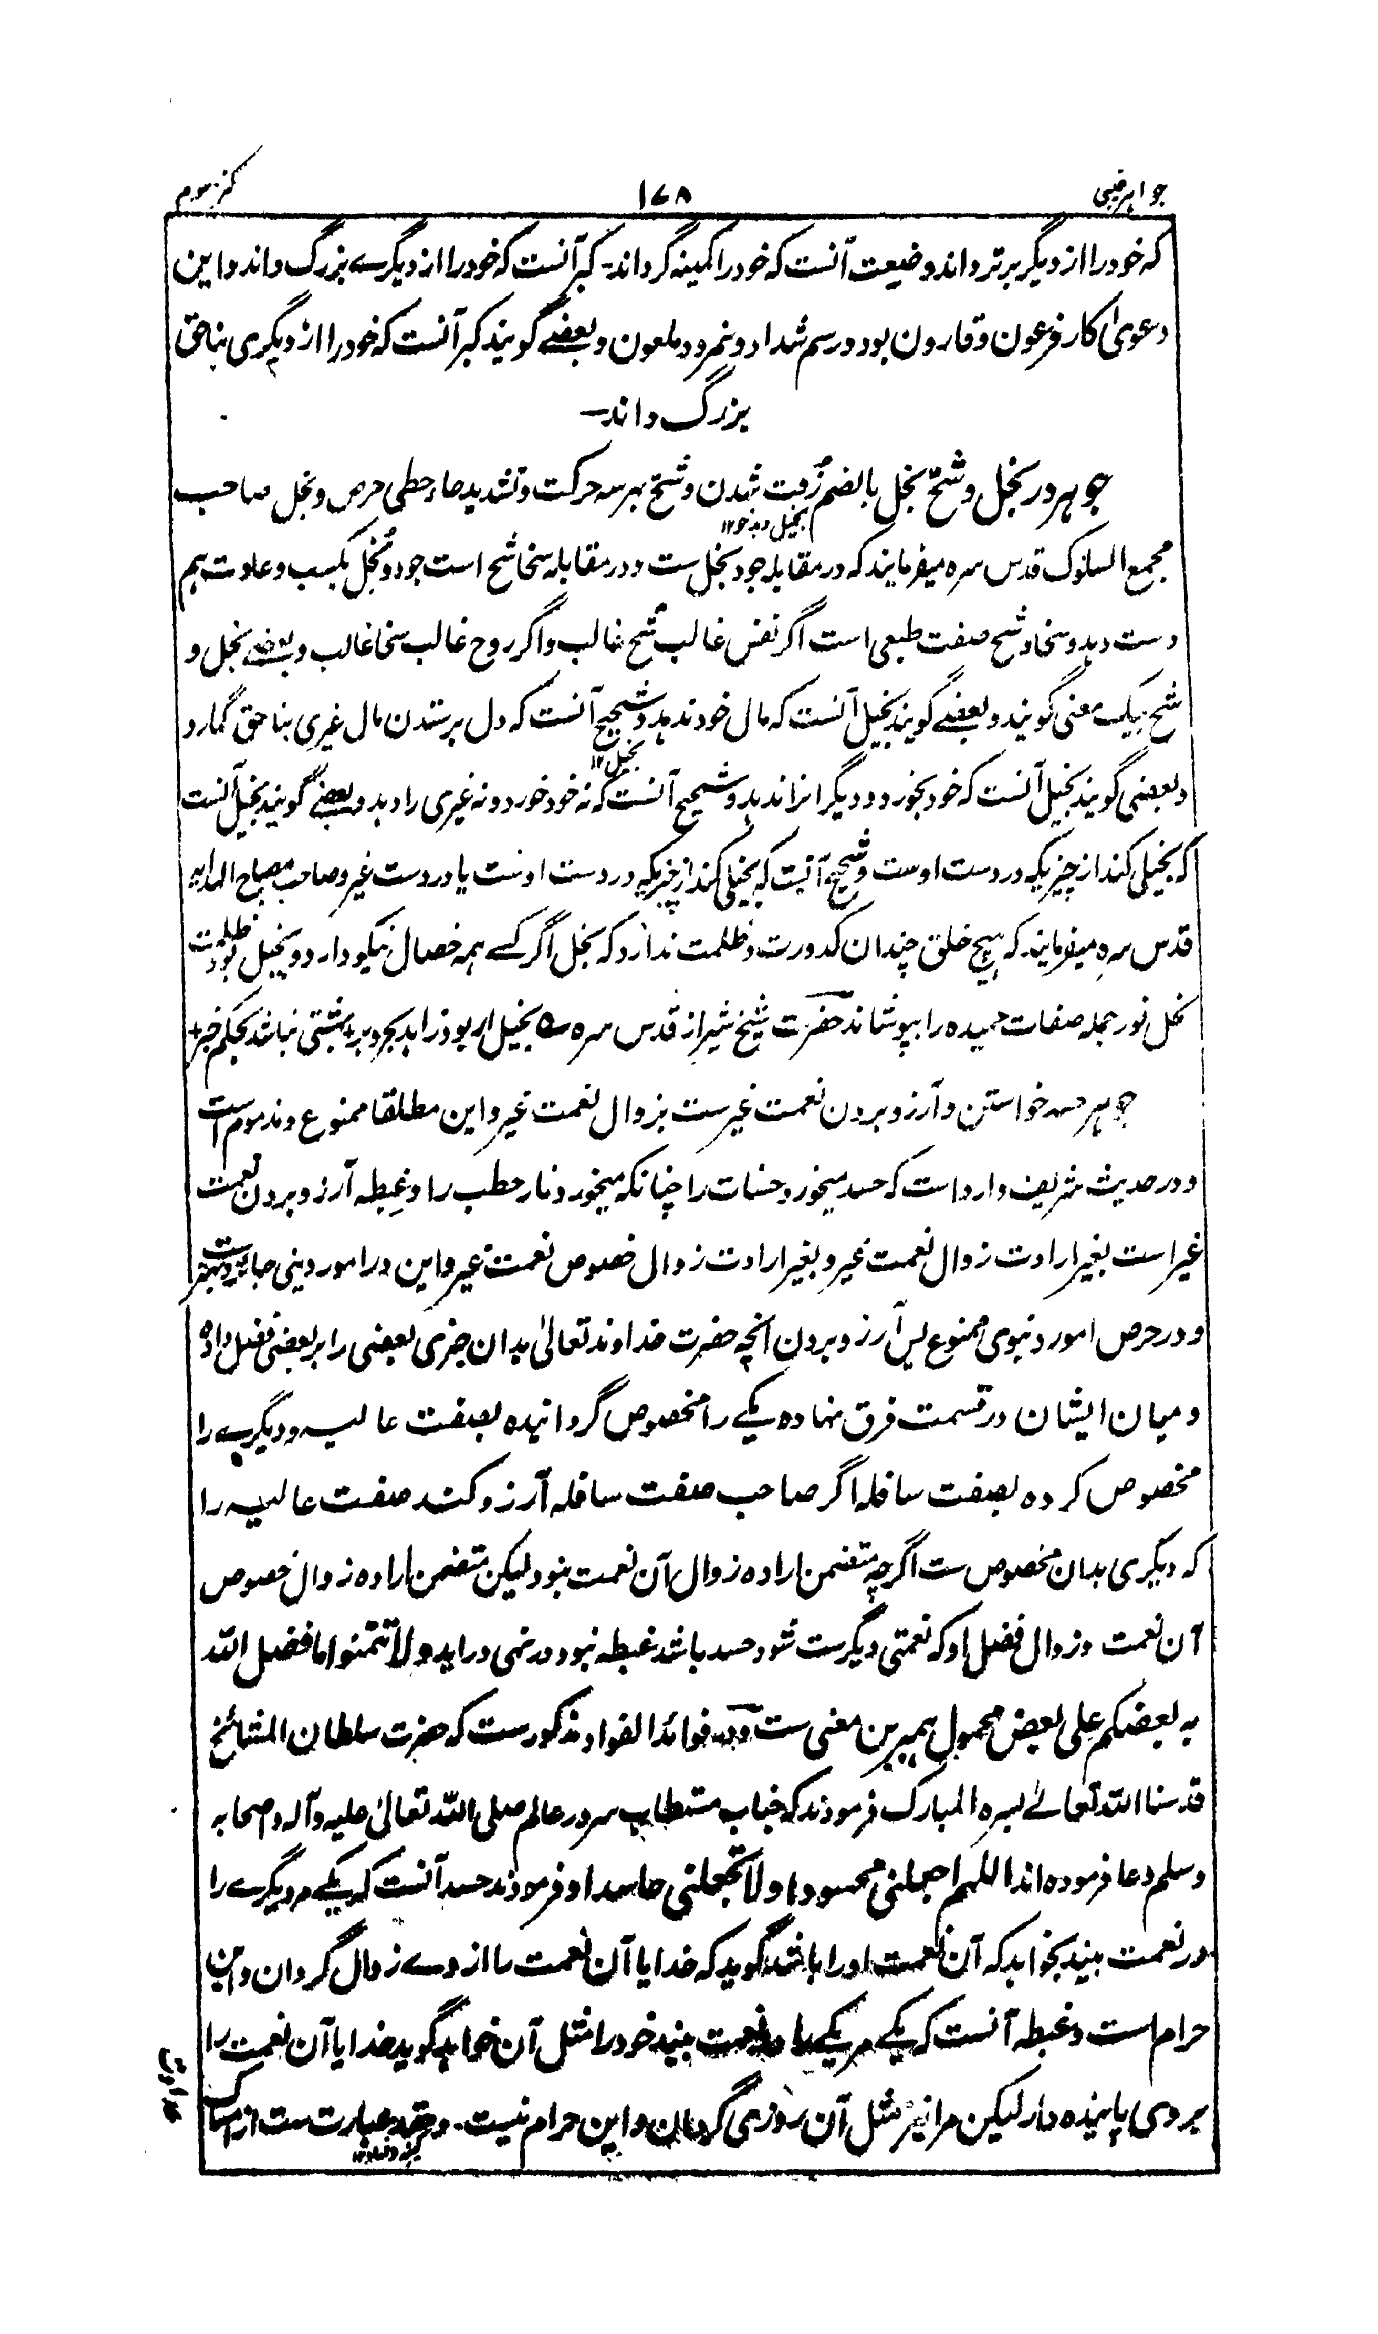 جواہر غیبی ۱۷۸ کنز سوم
که خود را از دیگر برتر داند وضیعت آنست که خود را کمینه گرداند۔ کبر آنست که خود را از دیگرے بزرگ داند و این
دعویٰ کار فرعون و قارون بود و رسم شداد و نمرود ملعون و بعضے گویند کبر آنست که خود را از دیگری بناحق
بزرگ داند—
جوہر در بخل و شحّ بخل بالضم زُفت شدن و شح بہر سہ حرکت و تشدید حاء حطی حرص و بخل صاحب
مجمع السلوک قدس سره میفرمایند که در مقابله جود بخل ست و در مقابله سخا شح است جود و بُخل بکسب و عادت ہم
دست دہد و سخا و شح صفت طبعی است اگر نفس غالب شُح غالب و اگر روح غالب سخا غالب و بعضے بخل و
شح بیک معنی گویند و بعضے گویند بخیل آنست که مال خود ندہد و شحیح آنست که دل بر ستدن مال غیری بناحق گمارد
بخیل ۱۲
و بعضی گویند بخیل آنست که خود بخورد و دیگرانرا ندہد و شحیح آنست که نہ خود خورد و نہ غیری را دہد و بعضے گویند بخیل آنست
که بخیلی کند از چیزیکه در دست اوست و شحیح آنست که بخیلی کند از چیزیکه در دست اوست یا در دست غیر و صاحب مصباح الہدایه
قدس سره میفرمایند که ہیچ خلق چندان کدورت و ظلمت ندارد که بخل اگر کسے ہمه خصال نیکو دارد و بخیل بود ظلمت
بخل نور جمله صفات حمیده را بپوشاند حضرت شیخ شیراز قدس سره ؎ بخیل ار بود زاہد بحر و بر + بہشتی نباشد بحکم خبر +
جوہر حسد خواستن و آرزو بردن نعمت غیرست بزوال نعمت غیر و این مطلقا ممنوع و مذموم است
و در حدیث شریف وارد است که حسد میخورد حسنات را چنانکه میخورد نار حطب را و غِبطه آرزو بردن نعمت
غیر است بغیر ارادت زوال نعمت غیر و بغیر ارادت زوال خصوص نعمت غیر و این در امور دینی جائزست
و در حرص امور دنیوی ممنوع پس آرزو بردن آنچه حضرت خداوند تعالیٰ بدان چیزی بعضی را بر بعضی فضل داده
و میان ایشان در قسمت فرق نهاده یکے را مخصوص گردانیده بصفت عالیه و دیگرے را
مخصوص کرده بصفت سافله اگر صاحب صفت سافله آرزو کند صفت عالیه را
که دیگری بدان مخصوص ست اگرچه متضمن اراده زوال آن نعمت نبود لیکن متضمن اراده زوال خصوص
آن نعمت و زوال فضل او که نعمتی دیگرست شود حسد باشد غبطه نبود و در نہی در اید و لا تتمنوا ما فضل اللّٰه
به بعضکم علی بعض محمول ہمبرین معنی ست و در فوائد الفواد مذکورست که حضرت سلطان المشائخ
قدسنا اللّٰه تعالےٰ بسره المبارک فرمودند که جناب مستطاب سرور عالم صلی اللّٰه تعالیٰ علیه وآله واصحابه
وسلم دعا فرموده اند اللہم اجعلنی محسودا ولا تجعلنی حاسدا و فرمودند حسد آنست که یکے مر دیگرے را
در نعمت بیند بخواہد که آن نعمت او را باشد گوید که خدایا آن نعمت را از وے زوال گردان و این
حرام است و غبطه آنست که یکے مر یکے را در نعمت بیند خود را مثل آن خواہد گوید خدایا آن نعمت را
بر وی پاینده دار لیکن مرا نیز مثل آن روزی گردان و این حرام نیست۔ و حقد عبارت ست از امساک
عداوت